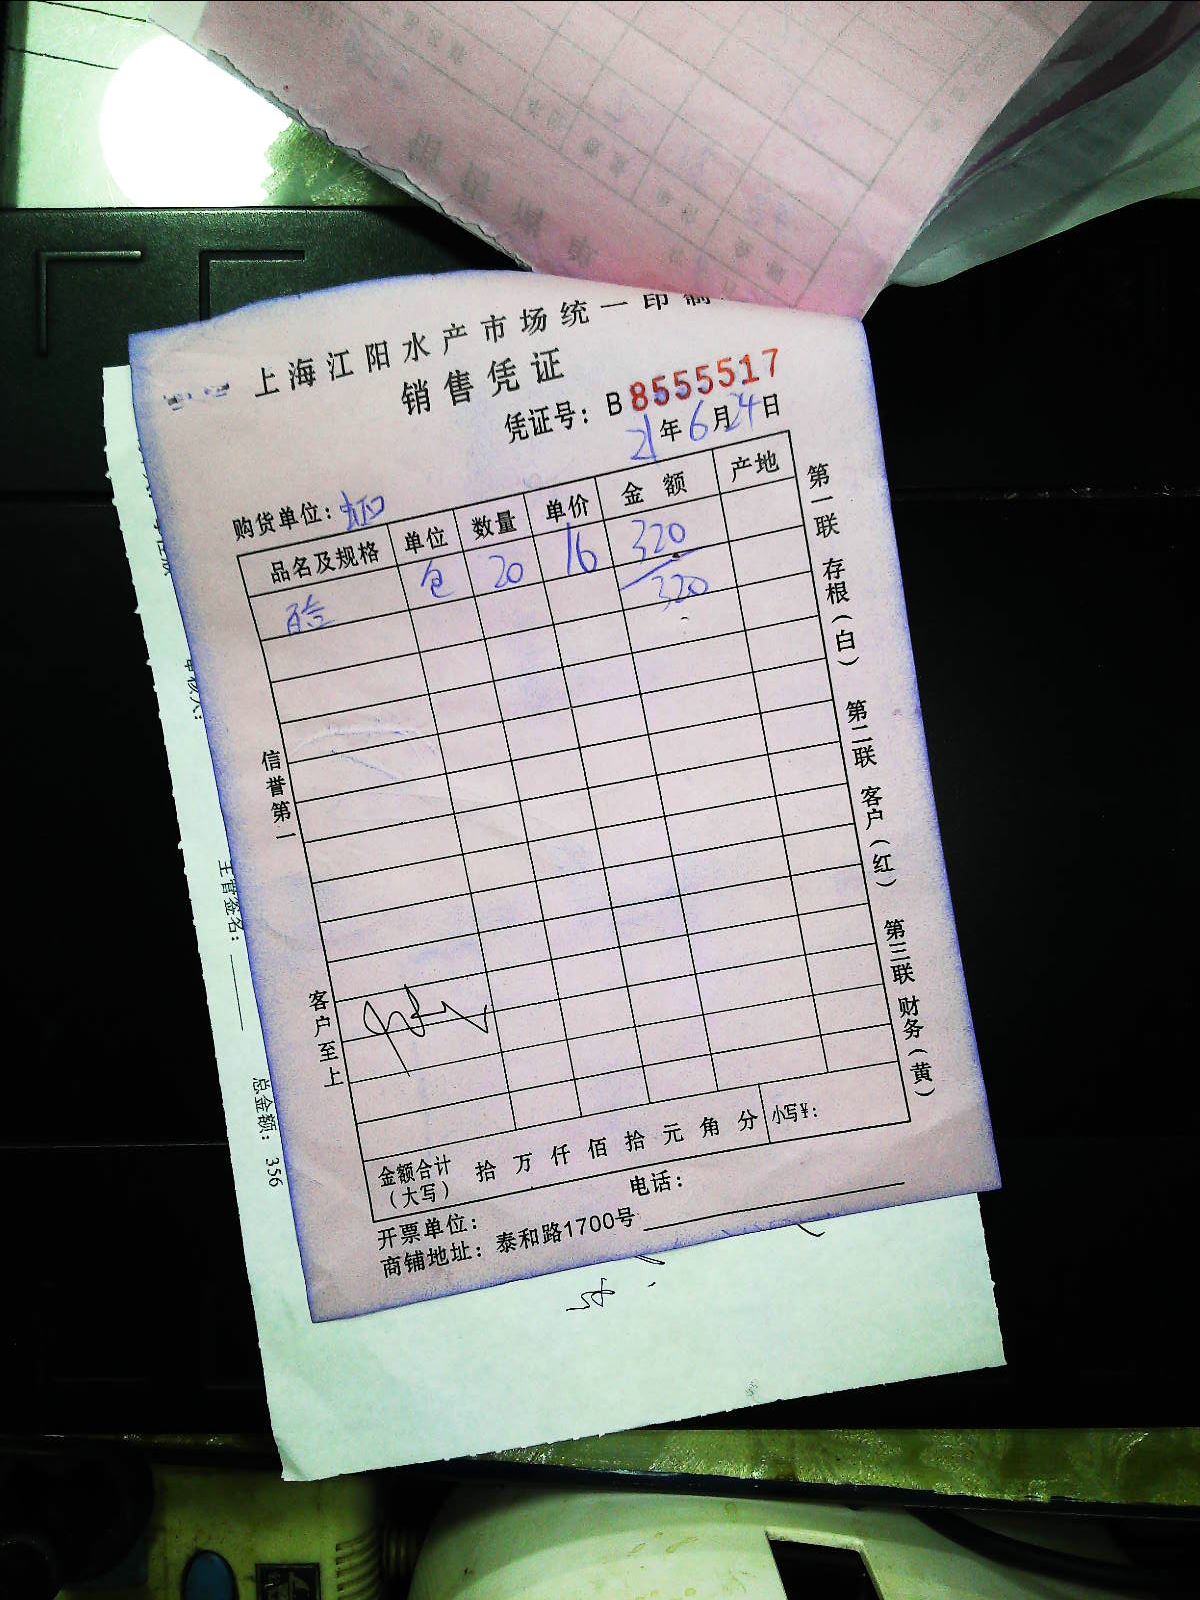 上海江阳水产市场统一印制
销售凭证
凭证号：B8555517
21年6月24日
购货单位：
品名及规格 单位 数量 单价 金额 产地
包 20 16 320
320
信誉第一
客户至上
第一联 存根（白） 第二联 客户（红） 第三联 财务（黄）
金额合计（大写） 拾 万 仟 佰 拾 元 角 分 小写¥：
开票单位： 电话：
商铺地址：泰和路1700号
主管签名：
总金额：356